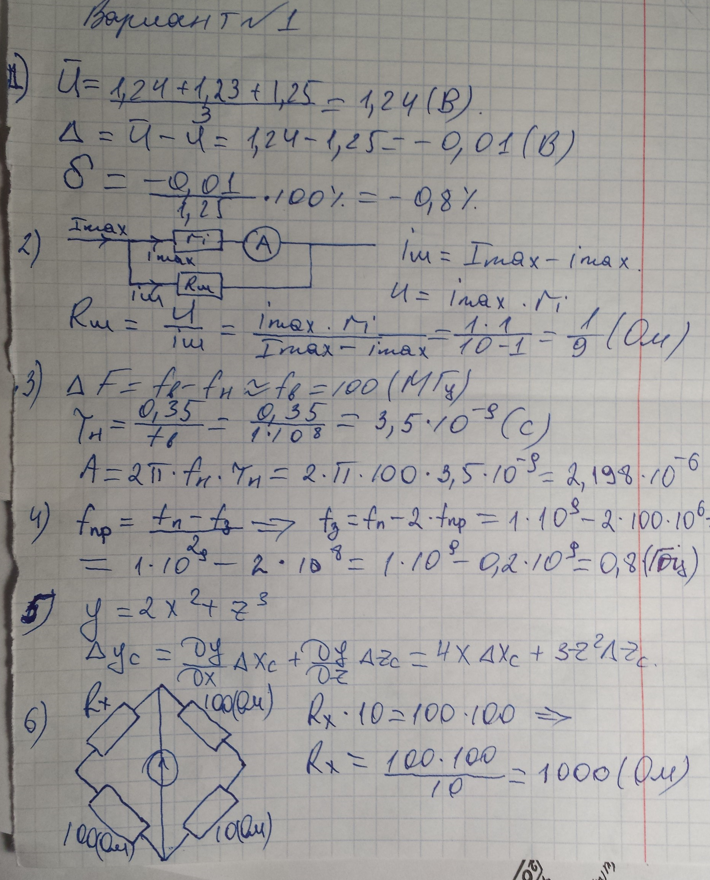 Вариант №1
1) Ū = (1,24 + 1,23 + 1,25)/3 = 1,24 (В).
Δ = Ū - U = 1,24 - 1,25 = -0,01 (В)
δ = -0,01/1,25 · 100% = -0,8%
2) Imax imax ri A iш Rш iш = Imax - imax.
U = imax · ri
Rш = U/iш = imax · ri/(Imax - imax) = 1·1/(10-1) = 1/9 (Ом)
3) ΔF = fв - fн ≈ fв = 100 (МГц)
τн = 0,35/fв = 0,35/(1·10⁸) = 3,5·10⁻⁹ (с)
A = 2π·fп·τн = 2·π·100·3,5·10⁻⁹ = 2,198·10⁻⁶
4) fпр = (fп - fз)/2 ⇒ fз = fп - 2·fпр = 1·10⁹ - 2·100·10⁶ =
= 1·10⁹ - 2·10⁸ = 1·10⁹ - 0,2·10⁹ = 0,8 (Ггц)
5) y = 2x² + z³
Δyc = ∂y/∂x Δxc + ∂y/∂z Δzc = 4x Δxc + 3z² Δzc.
6) Rx 100(Ом) Rx · 10 = 100 · 100 ⇒
Rx = 100·100/10 = 1000 (Ом)
100(Ом) 10(Ом)